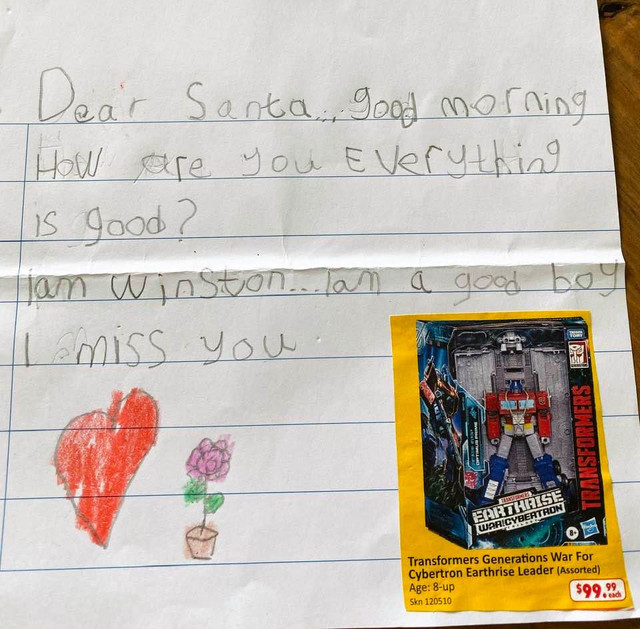 Dear Santa... good morning
How are you Everything
is good?
I am Winston... I am a good boy
I miss you
TAKARA TOMY
TRANSFORMERS
TRANSFORMERS
EARTHRISE
WAR FOR CYBERTRON
8+
Hasbro
Transformers Generations War For
Cybertron Earthrise Leader (Assorted)
Age: 8-up
Skn 120510
$99.99 each